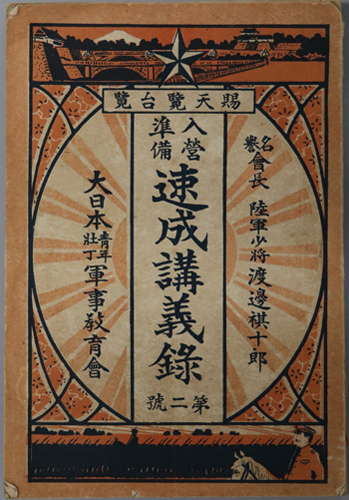 賜天覽台覽
名譽會長 陸軍少將 渡邊祺十郎
入營準備
速成講義錄
第二號
大日本青年壯丁軍事教育會